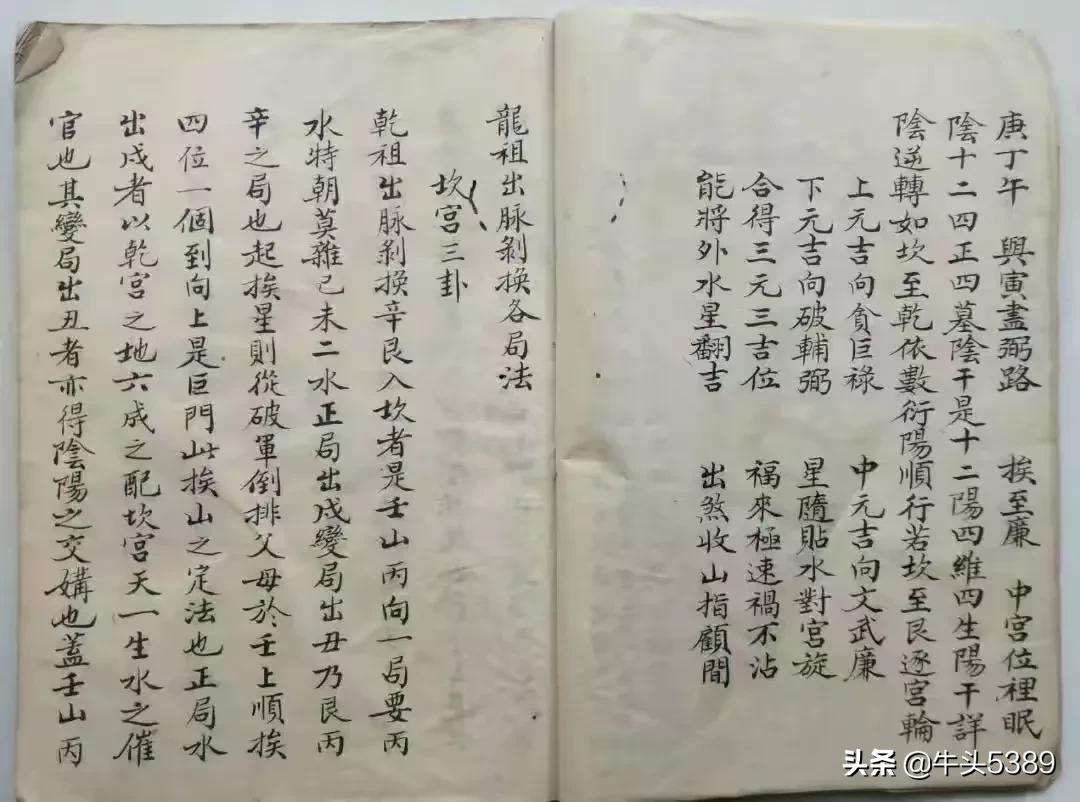 庚丁午　與寅盡弼路　挨至廉　中宮位裡眠
陰十二四正四墓陰干是十二陽四維四生陽干詳
陰逆轉如坎至乾依數衍陽順行若坎至艮逐宮輪
上元吉向貪巨祿　中元吉向文武廉
下元吉向破輔弼　星隨貼水對宮旋
合得三元三吉位　福來極速禍不沾
能將外水星翻吉　出煞收山指顧間
龍祖出脉剝換各局法
坎宮三卦
乾祖出脉剝換辛艮入坎者是壬山丙向一局要丙
水特朝莫雜巳未二水正局出戌變局出丑乃艮丙
辛之局也起挨星則從破軍倒排父母於壬上順挨
四位一個到向上是巨門此挨山之定法也正局水
出戌者以乾宮之地六成之配坎宮天一生水之催
官也其變局出丑者亦得陰陽之交媾也蓋壬山丙
头条 @牛头5389